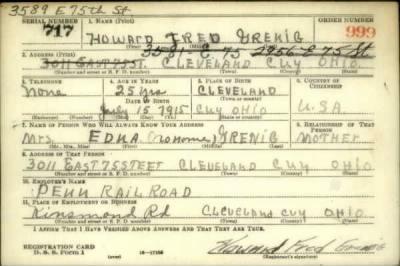 3589 E 75th St
SERIAL NUMBER 1. NAME (Print) ORDER NUMBER
717 HOWARD FRED GRENIG 999
(First) (Middle) (Last)
2. ADDRESS (Print) 3581-E 75 2956 E 75 St
3011 EAST 75 ST. CLEVELAND CUY OHIO.
(Number and street or R. F. D. number) (Town) (County) (State)
3. TELEPHONE 4. AGE IN YEARS 5. PLACE OF BIRTH 6. COUNTRY OF CITIZENSHIP
None 25 yrs CLEVELAND
DATE OF BIRTH (Town or county)
July 15 1915 CUY OHIO. U.S.A.
(Exchange) (Number) (Mo.) (Day) (Yr.) (State or country)
7. NAME OF PERSON WHO WILL ALWAYS KNOW YOUR ADDRESS 8. RELATIONSHIP OF THAT PERSON
Mrs. EDNA GRENIG MOTHER
(Mr., Mrs., Miss) (First) (Middle) (Last)
9. ADDRESS OF THAT PERSON
3011 EAST 75 STEET CLEVELAND CUY OHIO
(Number and street or R. F. D. number) (Town) (County) (State)
10. EMPLOYER'S NAME
PENN RAILROAD
11. PLACE OF EMPLOYMENT OR BUSINESS
Kinsmond Rd CLEVELAND CUY OHIO
(Number and street or R. F. D. number) (Town) (County) (State)
I AFFIRM THAT I HAVE VERIFIED ABOVE ANSWERS AND THAT THEY ARE TRUE.
REGISTRATION CARD
D. S. S. Form 1 (over) 16—17105 Howard Fred Grenig
(Registrant's signature)